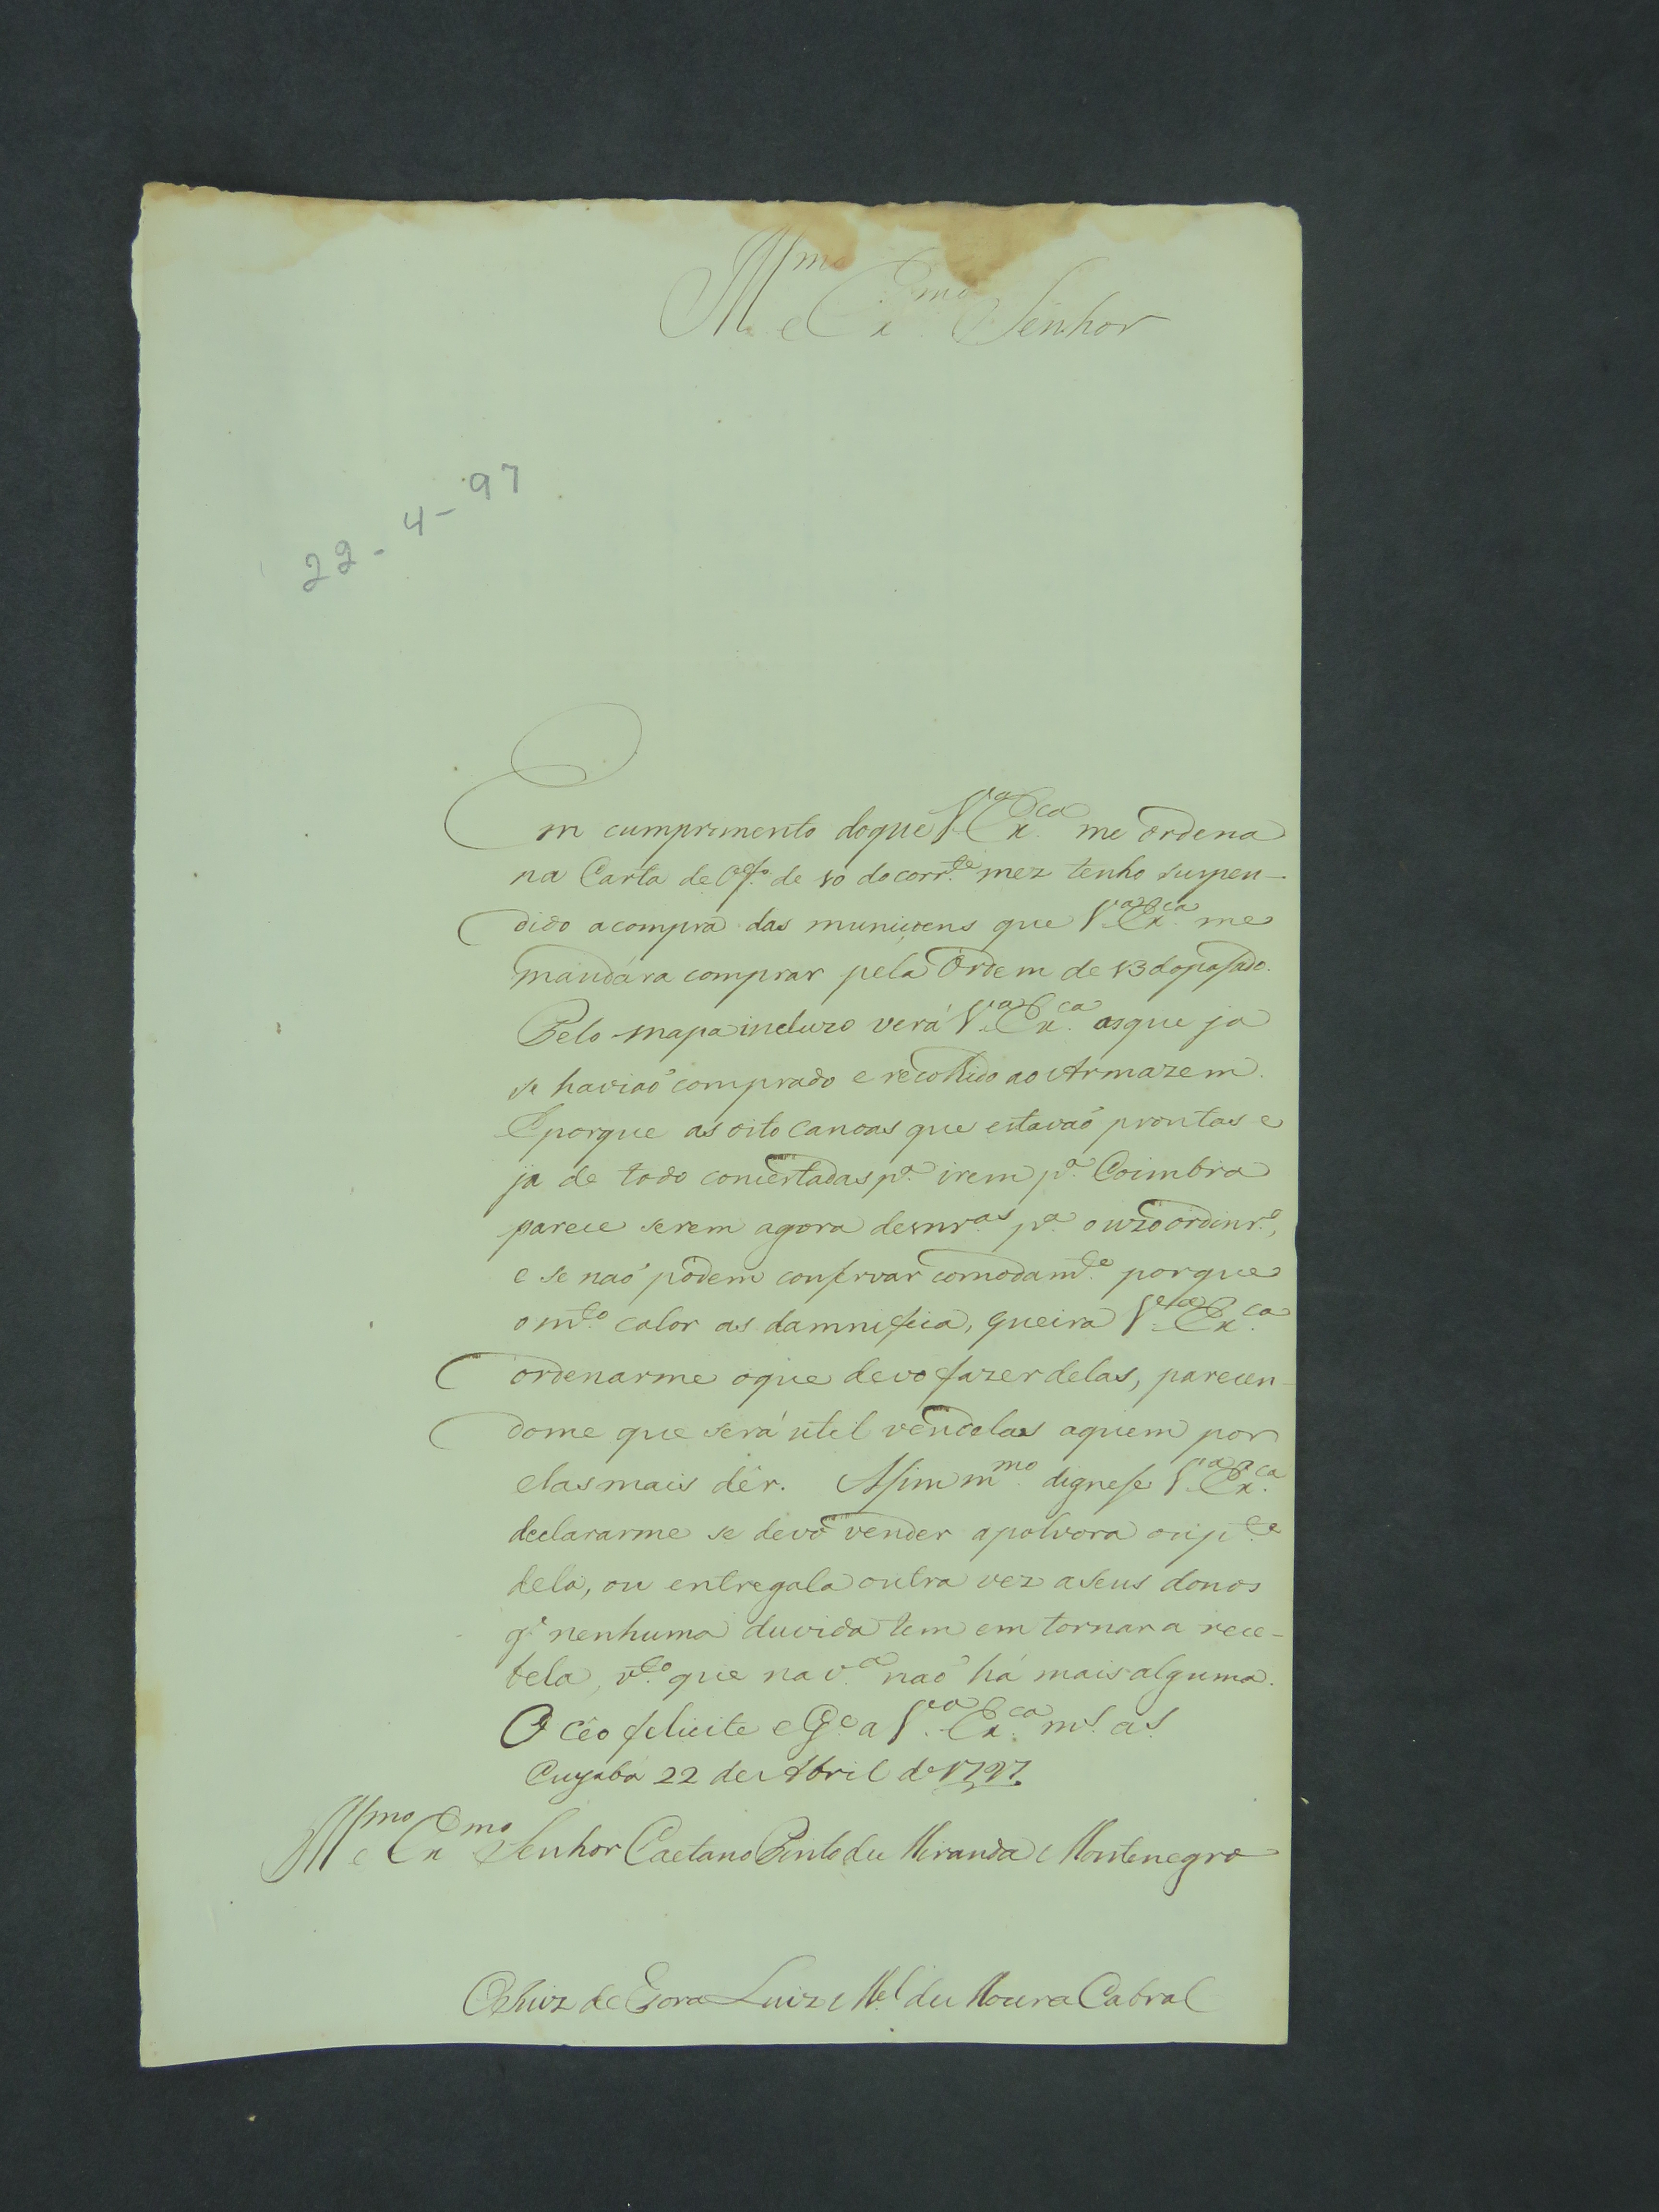 Ill.mo e Ex.mo Senhor
22-4-97
Em cumprimento doque V.a Ex.ca me ordena
na Carta de Off.o de 10 do corr.te mez tenho suspen-
dido acompra das municoens que V.a Ex.ca me
mandára comprar pela Ordem de 13 dopasado.
Pelo mapa incluzo verá V.a Ex.ca asque ja
se haviaõ comprado e recolhido ao Armazem.
Eporque as oito canoas que estavaõ prontas e
ja de todo concertadas p.a irem p.a Coimbra
parece serem agora desnr.as p.a o uzo ordinr.o,
e se naõ podem conservar comodam.te porque
o m.to calor as damnifica, queira V.a Ex.ca
ordenarme oque devo fazer delas, parecen-
dome que será util vendelas aquem por
elas mais dér. Assim m.mo dignese V.a Ex.ca
declararme se devo vender apolvora ou p.te
dela, ou entregala outra vez a seus donos
q.' nenhuma duvida tem em tornar a rece-
bela, v.to que na v.a naõ há mais alguma.
O Céo felicite e G.e a V.a Ex.ca m.s a.s
Cuyabá 22 de Abril de 1797.
Ill.mo e Ex.mo Senhor Caetano Pinto de Miranda Montenegro
O Juiz de Fora Luiz M.el de Moura Cabral